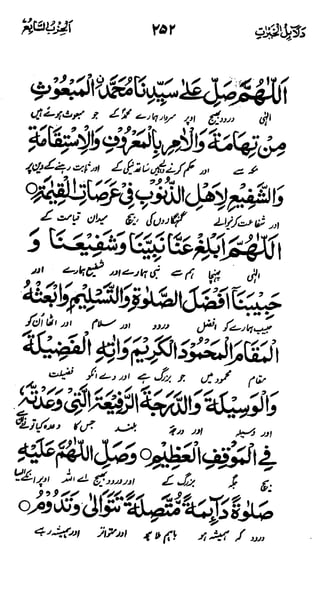 دلائل الخیرات ۲۵۲ الحزب السابع
اَللّٰهُمَّ صَلِّ عَلٰى سَيِّدِنَا مُحَمَّدِ نِ الْمَبْعُوْثِ
الٰہی درود بھیج اوپر سردار ہمارے محمد کے جو مبعوث ہوئے ہیں
مِنْ تِهَامَةَ وَالْاٰمِرِ بِالْمَعْرُوْفِ وَالْاِسْتِقَامَةِ
مکہ سے اور حکم کرنے والے ہیں ساتھ نیکی کے اور ثابت رہنے کے دین پر
وَالشَّفِيْعِ لِاَهْلِ الذُّنُوْبِ فِيْ عَرَصَاتِ الْقِيٰمَةِ○
اور شفاعت کرنیوالے گنہگاروں کی بیچ میدان قیامت کے
اَللّٰهُمَّ اَبْلِغْ عَنَّا نَبِيَّنَا وَشَفِيْعَنَا وَ
الٰہی پہنچا ہم سے نبی ہمارے اور شفیع ہمارے اور
حَبِيْبَنَا اَفْضَلَ الصَّلٰوةِ وَالتَّسْلِيْمِ وَابْعَثْهُ
حبیب ہمارے کو افضل درود اور سلام اور اٹھا ان کو
الْمَقَامَ الْمَحْمُوْدَ الْكَرِيْمَ وَاٰتِهِ الْفَضِيْلَةَ
مقام محمود میں جو بزرگ ہے اور دے انکو فضیلت
وَالْوَسِيْلَةَ وَالدَّرَجَةَ الرَّفِيْعَةَ الَّتِيْ وَعَدْتَّهٗ
اور وسیلہ اور درجہ بلند جس کا وعدہ کیا تونے
فِي الْمَوْقِفِ الْعَظِيْمِ○ وَصَلِّ اللّٰهُمَّ عَلَيْهِ
بیچ جگہ بزرگ کے اور درود بھیج اے اللہ اوپر
صَلٰوةً دَآئِمَةً مُّتَّصِلَةً تَتَوَالٰى وَتَدُوْمُ○
درود کہ ہمیشہ ہو باہم ملا ہو اور متواتر اور ہمیشہ رہے